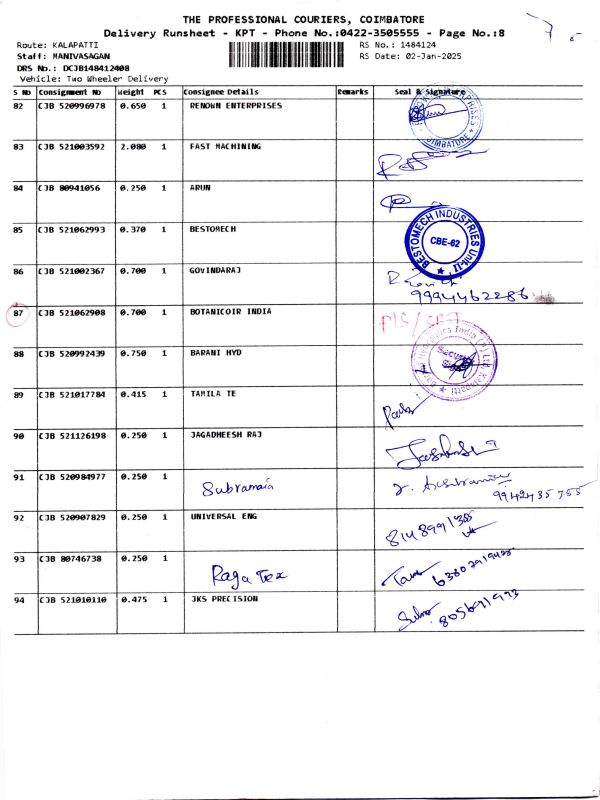 THE PROFESSIONAL COURIERS, COIMBATORE
Delivery Runsheet - KPT - Phone No.:0422-3505555 - Page No.:8
Route: KALAPATTI RS No.: 1484124
Staff: MANIVASAGAN RS Date: 02-Jan-2025
DRS No.: DCJB148412408
Vehicle: Two Wheeler Delivery
S No Consignment No Weight PCS Consignee Details Remarks Seal & Signature
82 CJB 520996978 0.650 1 RENOWN ENTERPRISES
COIMBATORE
83 CJB 521003592 2.080 1 FAST MACHINING
84 CJB 80941056 0.250 1 ARUN
85 CJB 521062993 0.370 1 BESTOMECH
BESTOMECH INDUSTRIES Unit-II
CBE-62
86 CJB 521002367 0.700 1 GOVINDARAJ
9994462286
87 CJB 521062908 0.700 1 BOTANICOIR INDIA
88 CJB 520992439 0.750 1 BARANI HYD
Security
89 CJB 521017784 0.415 1 TAMILA TE
90 CJB 521126198 0.250 1 JAGADHEESH RAJ
91 CJB 520984977 0.250 1 Subramaia
9942435755
92 CJB 520907829 0.250 1 UNIVERSAL ENG
93 CJB 80746738 0.250 1 Raga Tex
94 CJB 521010110 0.475 1 JKS PRECISION